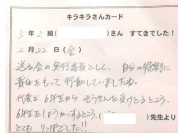 キラキラさんカード
5年2組( )さん すてきでした!
2月22日(金)
送る会の実行委員として、自分の役割に
責任をもって行動していましたね。
代表で6年生から を受けとるところ、
6年生を ところ、
( )先生より
とても りっぱでした!!